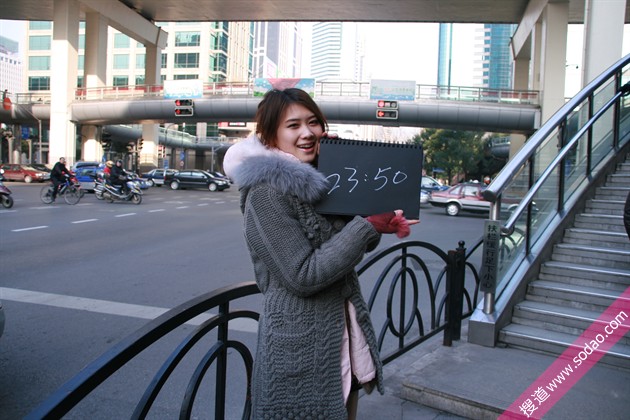 23:50
搜道www.sodao.com